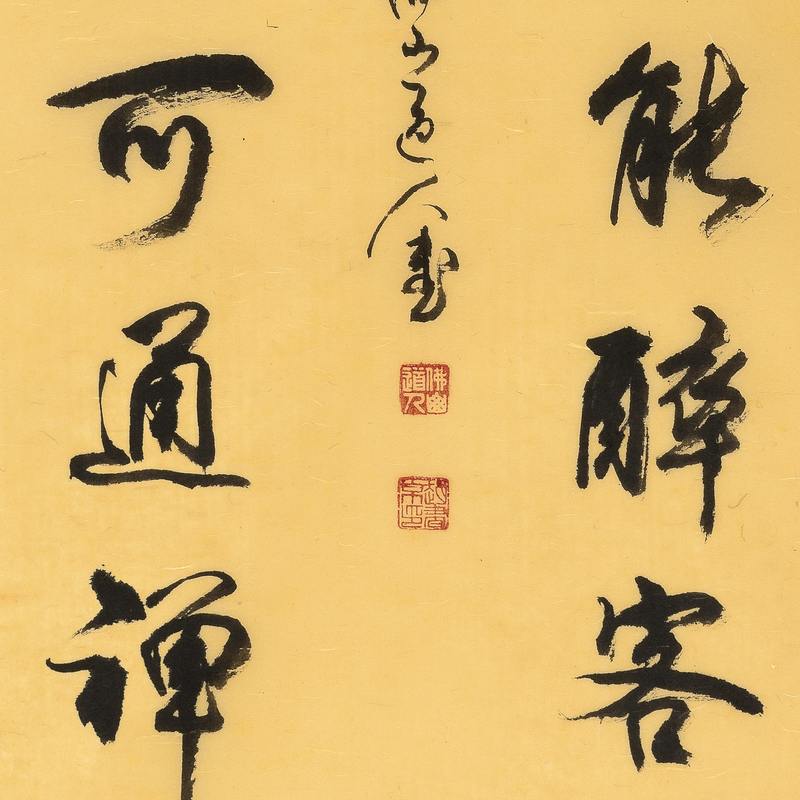 能醉客
山道人書
可通禪
佛幽道人